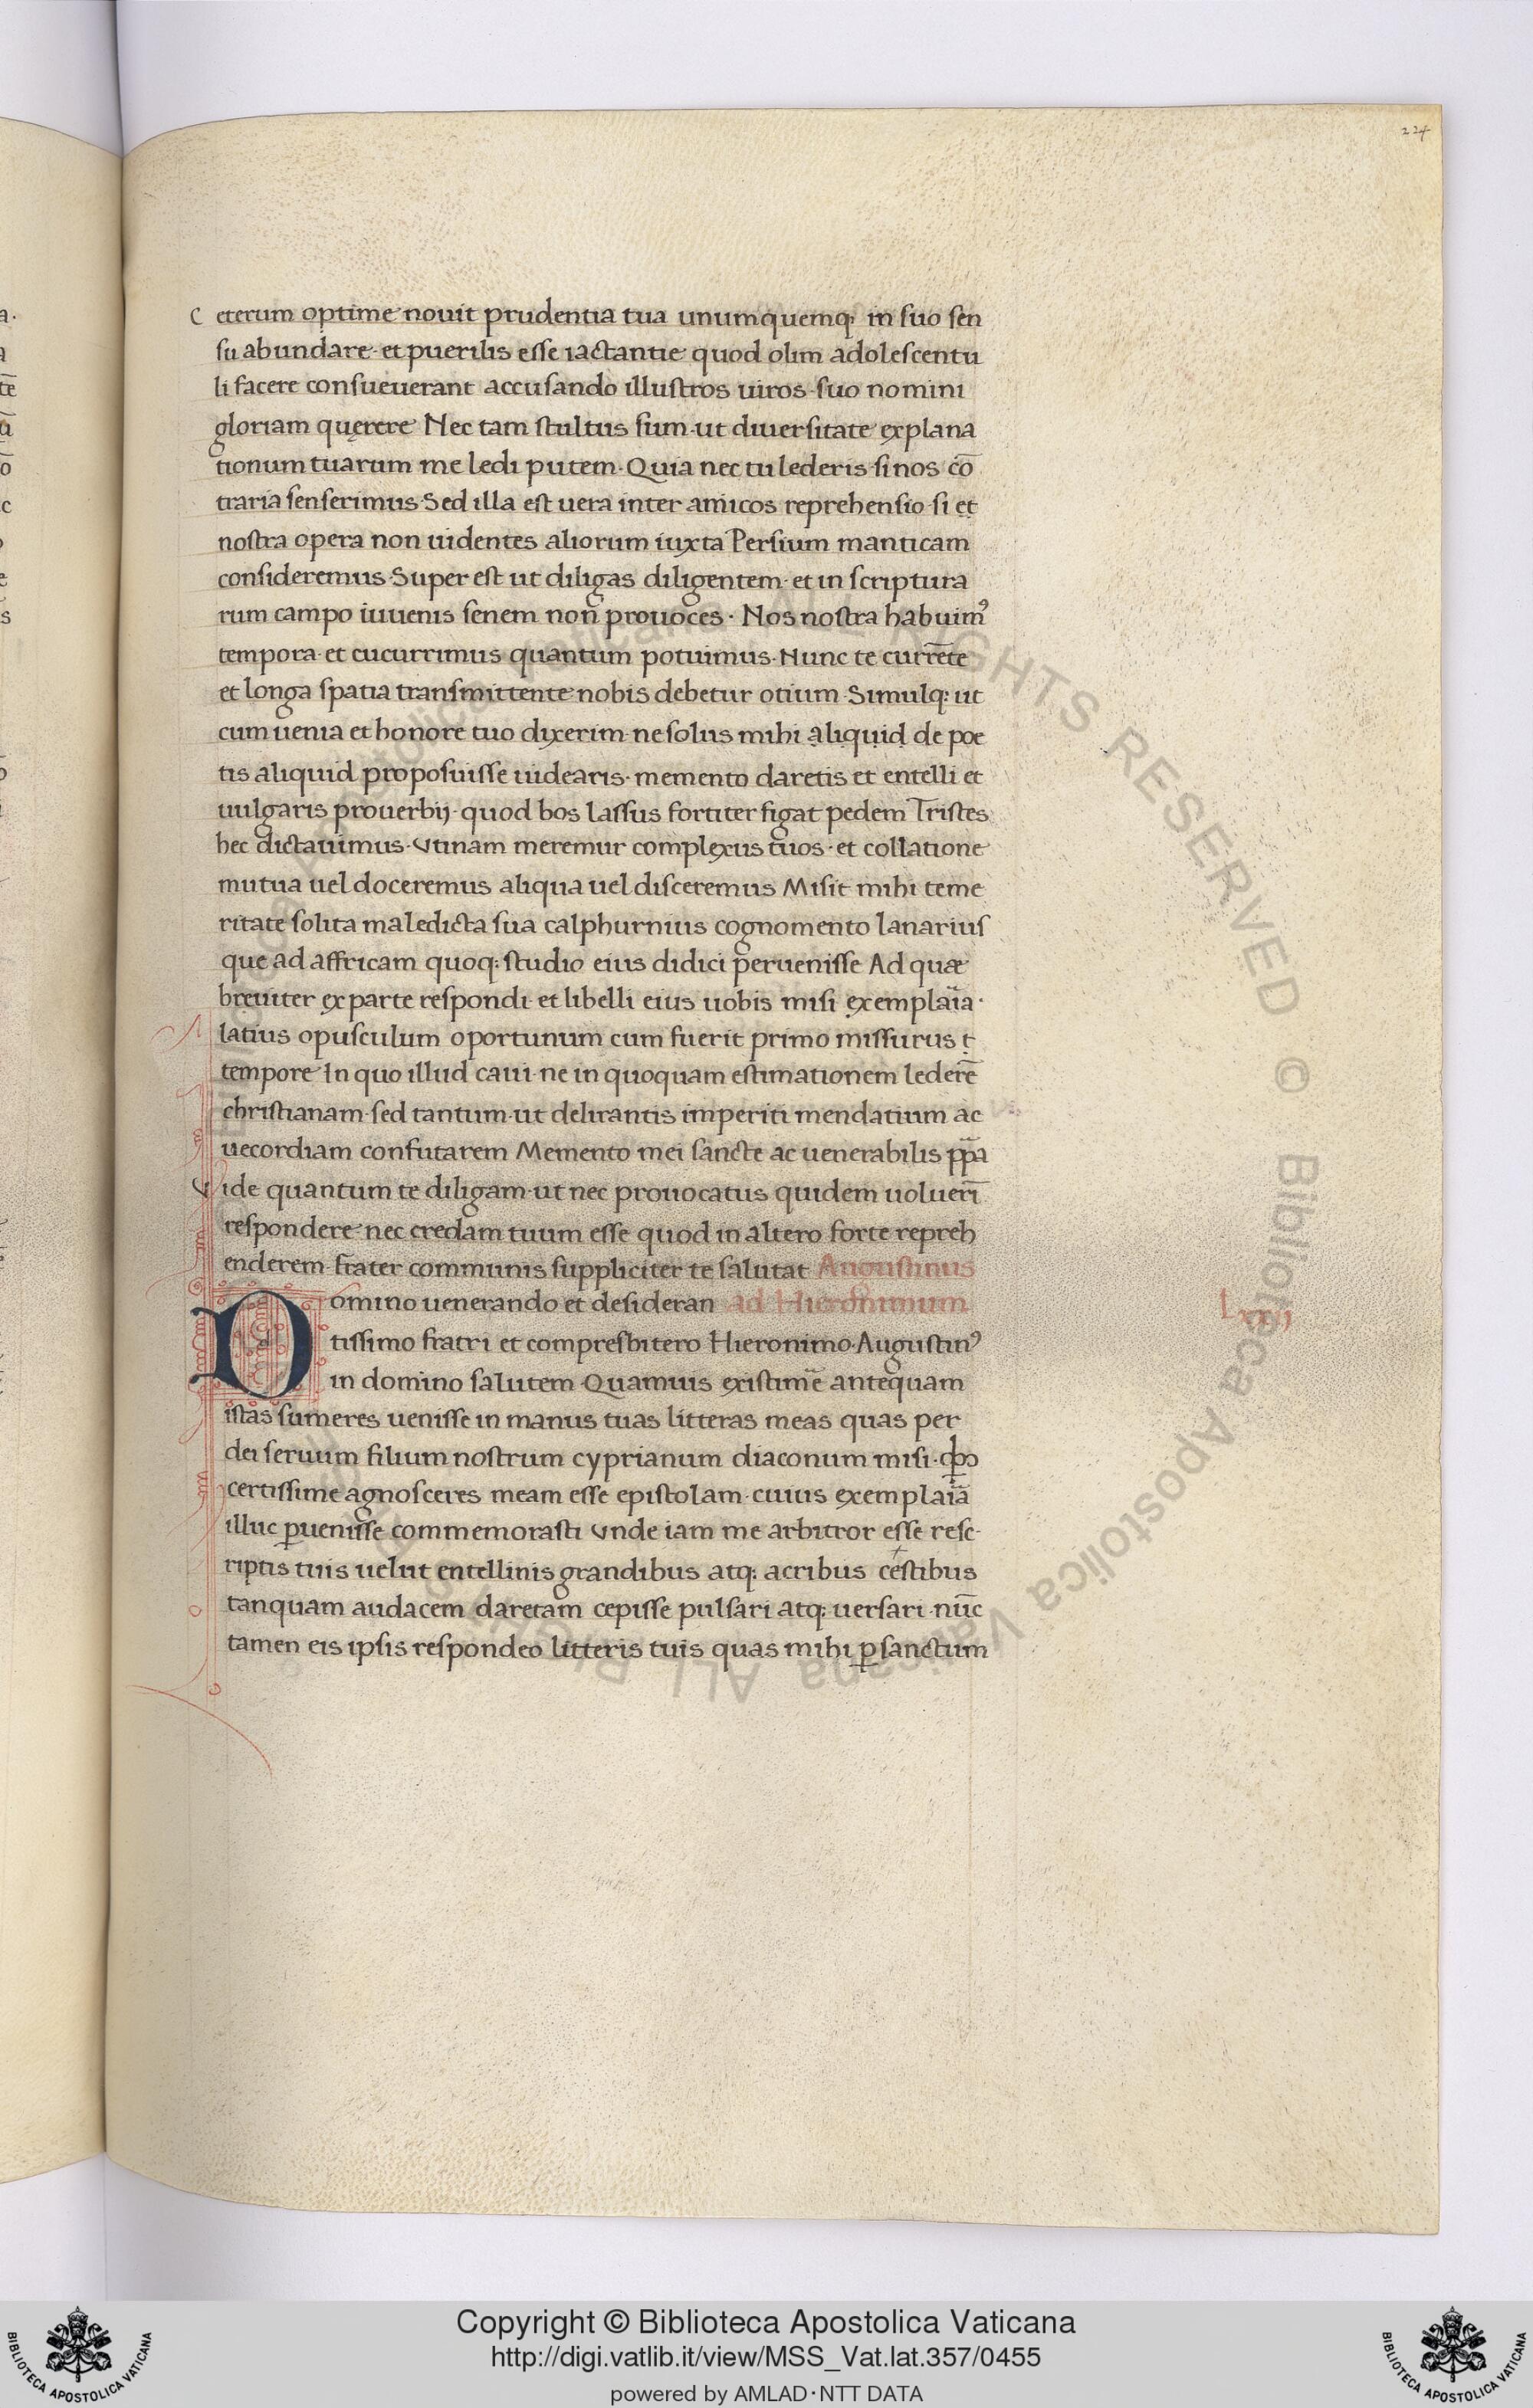 224
Ceterum optime nouit prudentia tua unumquemq; in suo sen
su abundare· et puerilis esse iactantie quod olim adolescentu
li facere consueuerant accusando illustros uiros· suo nomini
gloriam quęrere Nec tam stultus sum· ut diuersitate explana
tionum tuarum me ledi putem· Quia nec tu lederis si nos cō
traria senserimus· Sed illa est uera inter amicos reprehensio· si et
nostra opera non uidentes aliorum iuxta Persium manticam
consideremus· Super est ut diligas diligentem· et in scriptura
rum campo iuuenis senem non prouoces· Nos nostra habuimꝰ
tempora· et cucurrimus quantum potuimus· Nunc te currēte
et longa spatia transmittente nobis debetur otium· Simulq; ut
cum uenia et honore tuo dixerim· ne solus mihi aliquid de poe
tis aliquid proposuisse uidearis· memento daretis et entelli et
uulgaris prouerbij· quod bos lassus fortiter figat pedem Tristes
hec dictauimus· Vtinam meremur complexus tuos· et collatione
mutua uel doceremus aliqua uel disceremus Misit mihi teme
ritate solita maledicta sua calphurnius cognomento lanarius
que ad affricam quoq; studio eius didici peruenisse Ad quæ
breuiter ex parte respondi· et libelli eius uobis misi exemplaīa·
latius opusculum oportunum cum fuerit primo missurus t
tempore In quo illud caui· ne in quoquam estimationem lederē
christianam· sed tantum· ut delirantis imperiti mendatium ac
uecordiam confutarem Memento mei sancte ac uenerabilis pp̄a
Vide quantum te diligam· ut nec prouocatus quidem uoluerī
respondere· nec credam tuum esse quod in altero forte repreh
enderem· frater communis suppliciter te salutat Augustinus
Domino uenerando et desideran ad Hieronimum
Lxxij
tissimo fratri et compresbitero Hieronimo· Augustinꝰ
in domino salutem· Quamuis existimē antequam
istas sumeres uenisse in manus tuas litteras meas quas per
dei seruum filium nostrum cyprianum diaconum misi·
certissime agnosceres meam esse epistolam· cuius exemplaīa
illuc ꝑuenisse commemorasti Vnde iam me arbitror esse resc·
riptis tuis uelut entellinis grandibus atq; acribus cestibus
tanquam audacem daretam cepisse pulsari atq; uersari· nūc
tamen eis ipsis respondeo litteris tuis quas mihi ꝑ sanctum
Copyright © Biblioteca Apostolica Vaticana
http://digi.vatlib.it/view/MSS_Vat.lat.357/0455
powered by AMLAD·NTT DATA
BIBLIOTECA APOSTOLICA VATICANA
BIBLIOTECA APOSTOLICA VATICANA